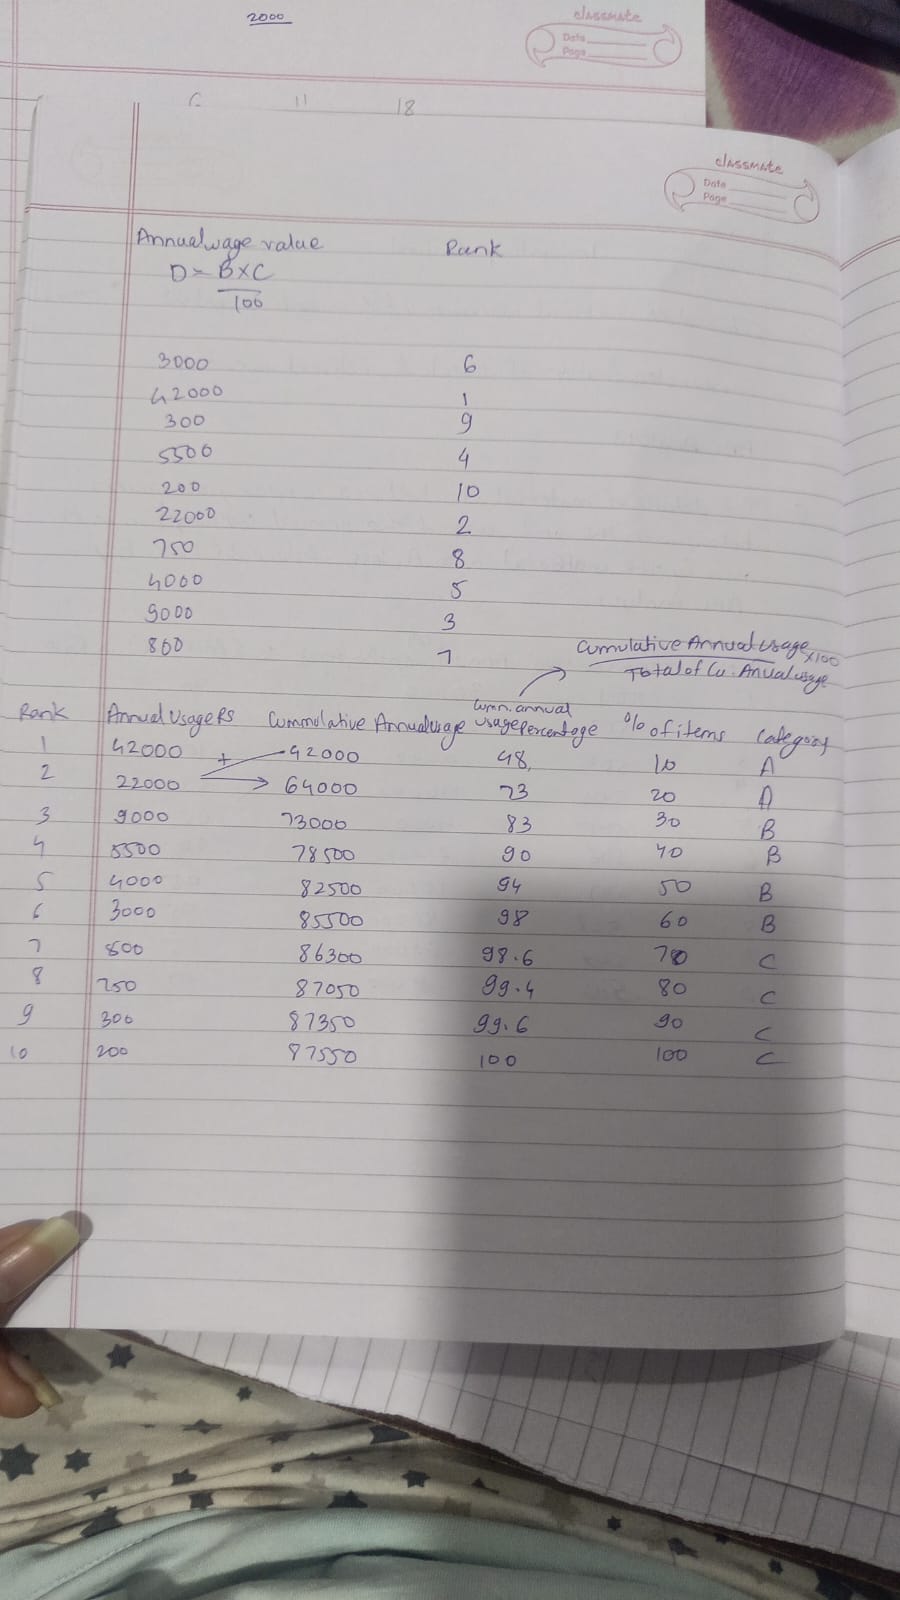 2000
classmate
Date
Page
6 11 18
classmate
Date
Page
Annual usage value Rank
D = B×C
100
3000 6
42000 1
300 9
5500 4
200 10
22000 2
750 8
4000 5
9000 3
800 7
Cumulative Annual usage ×100
Total of Cu. Anual usage
Rank Annual Usage RS Cummulative Annual usage Cumn. annual usage Percentage % of items Category
1 42000 + 42000 48 10 A
2 22000 64000 73 20 A
3 9000 73000 83 30 B
4 5500 78500 90 40 B
5 4000 82500 94 50 B
6 3000 85500 98 60 B
7 800 86300 98.6 70 C
8 750 87050 99.4 80 C
9 300 87350 99.6 90 C
10 200 87550 100 100 C